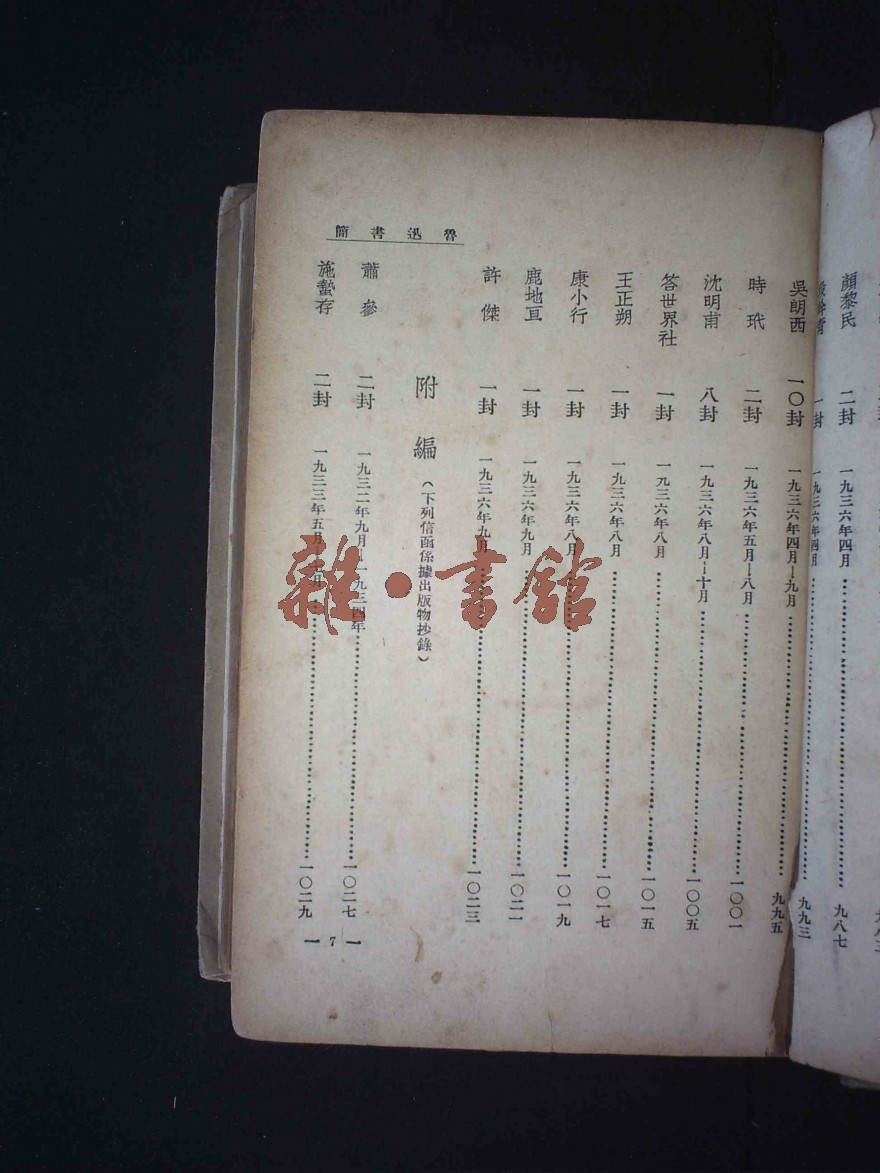 顏黎民 二封 一九三六年四月 九八七
一封 一九三六年四月 九九三
吳朗西 一〇封 一九三六年四月—九月 九九五
時玳 二封 一九三六年五月—八月 一〇〇一
沈明甫 八封 一九三六年八月—十月 一〇〇五
答世界社 一封 一九三六年八月 一〇一五
王正朔 一封 一九三六年八月 一〇一七
康小行 一封 一九三六年八月 一〇一九
鹿地亘 一封 一九三六年九月 一〇二一
許傑 一封 一九三六年九月 一〇二三
附編(下列信函係據出版物抄錄)
蕭參 二封 一九三二年九月—一九三四年 一〇二七
施蟄存 二封 一九三三年五月—七月 一〇二九
魯迅書簡
— 7 —
雜·書館